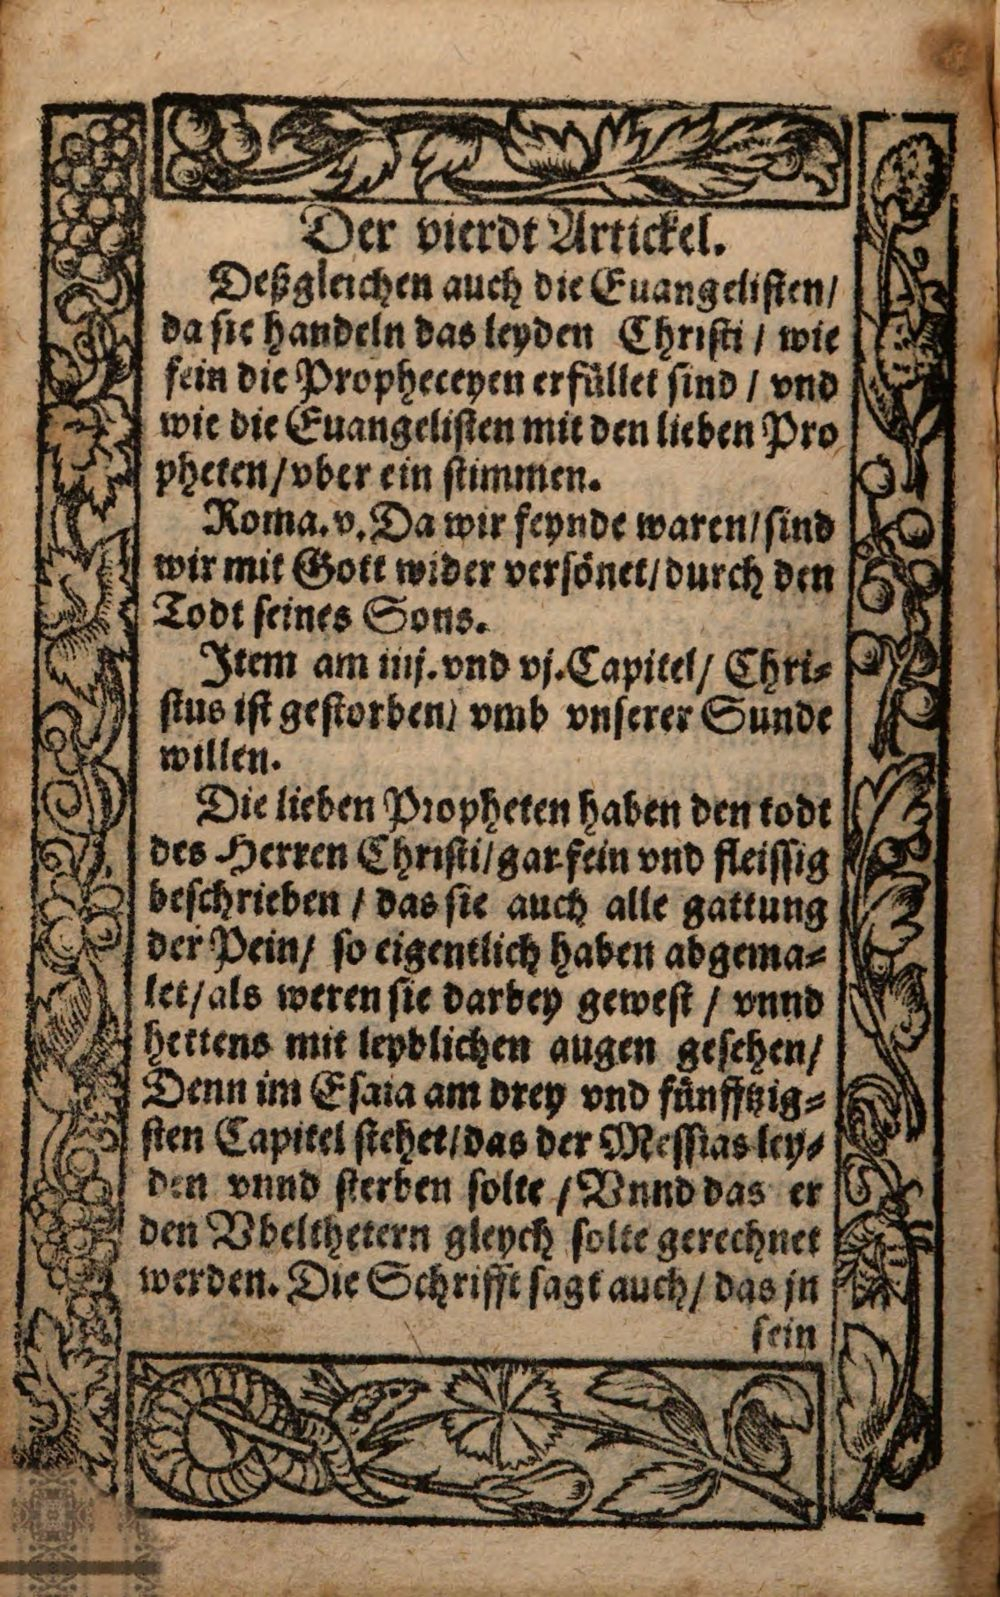 Der vierdt Artickel.
Deßgleichen auch die Euangelisten/
da sie handeln das leyden Christi / wie
fein die Propheceyen erfüllet sind / vnd
wie die Euangelisten mit den lieben Pro
pheten/vber ein stimmen.
Roma.v.Da wir feynde waren/sind
wir mit Gott wider versönet/durch den
Todt seines Sons.
Item am iiij.vnd vj.Capitel/ Chri-
stus ist gestorben/ vmb vnserer Sunde
willen.
Die lieben Propheten haben den todt
des Herren Christi/gar fein vnd fleissig
beschrieben / das sie auch alle gattung
der Pein/ so eigentlich haben abgema-
let/als weren sie darbey gewest / vnnd
hettens mit leydlichen augen gesehen/
Denn im Esaia am drey vnd fünfftzig-
sten Capitel stehet/das der Messias ley-
den vnnd sterben solte / Vnnd das er
den Vbelthetern gleych solte gerechnet
werden. Die Schrifft sagt auch/ das jn
sein